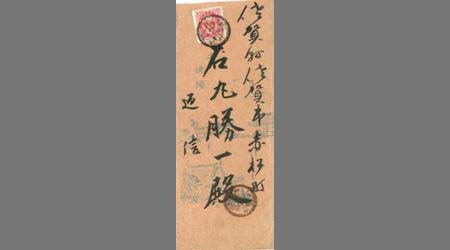 佐賀縣佐賀市赤松町
石丸勝一殿
迺信